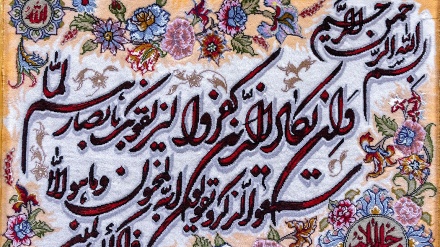 بسم الله الرحمن الرحیم
وان یکاد الذین کفروا لیزلقونک بابصارهم لما
سمعوا الذکر و یقولون انه لمجنون وما هو الا
ذکر للعلمین
الله